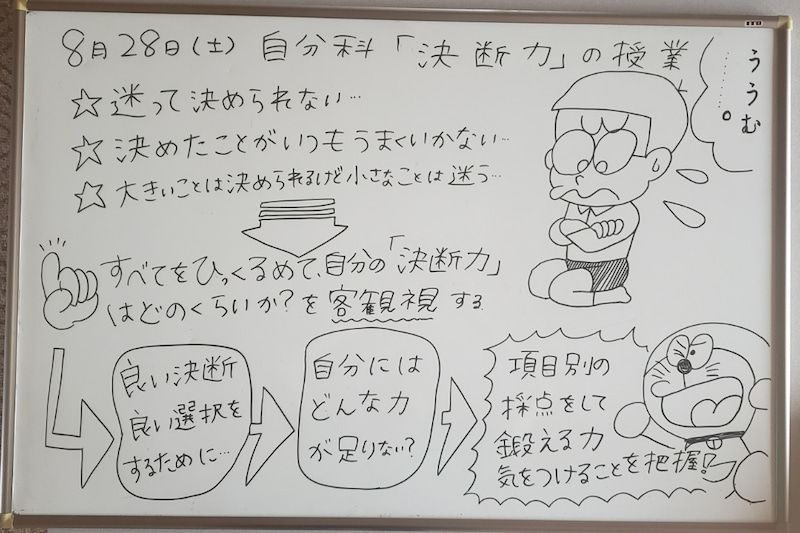 8月28日(土) 自分科「決断力」の授業
ううむ
……。
☆迷って決められない…
☆決めたことがいつもうまくいかない…
☆大きいことは決められるけど小さなことは迷う…
すべてをひっくるめて、自分の「決断力」
はどのくらいか?を客観視する
良い決断
良い選択を
するために…
自分には
どんな力
が足りない?
項目別の
採点をして
鍛える力
気をつけることを把握!